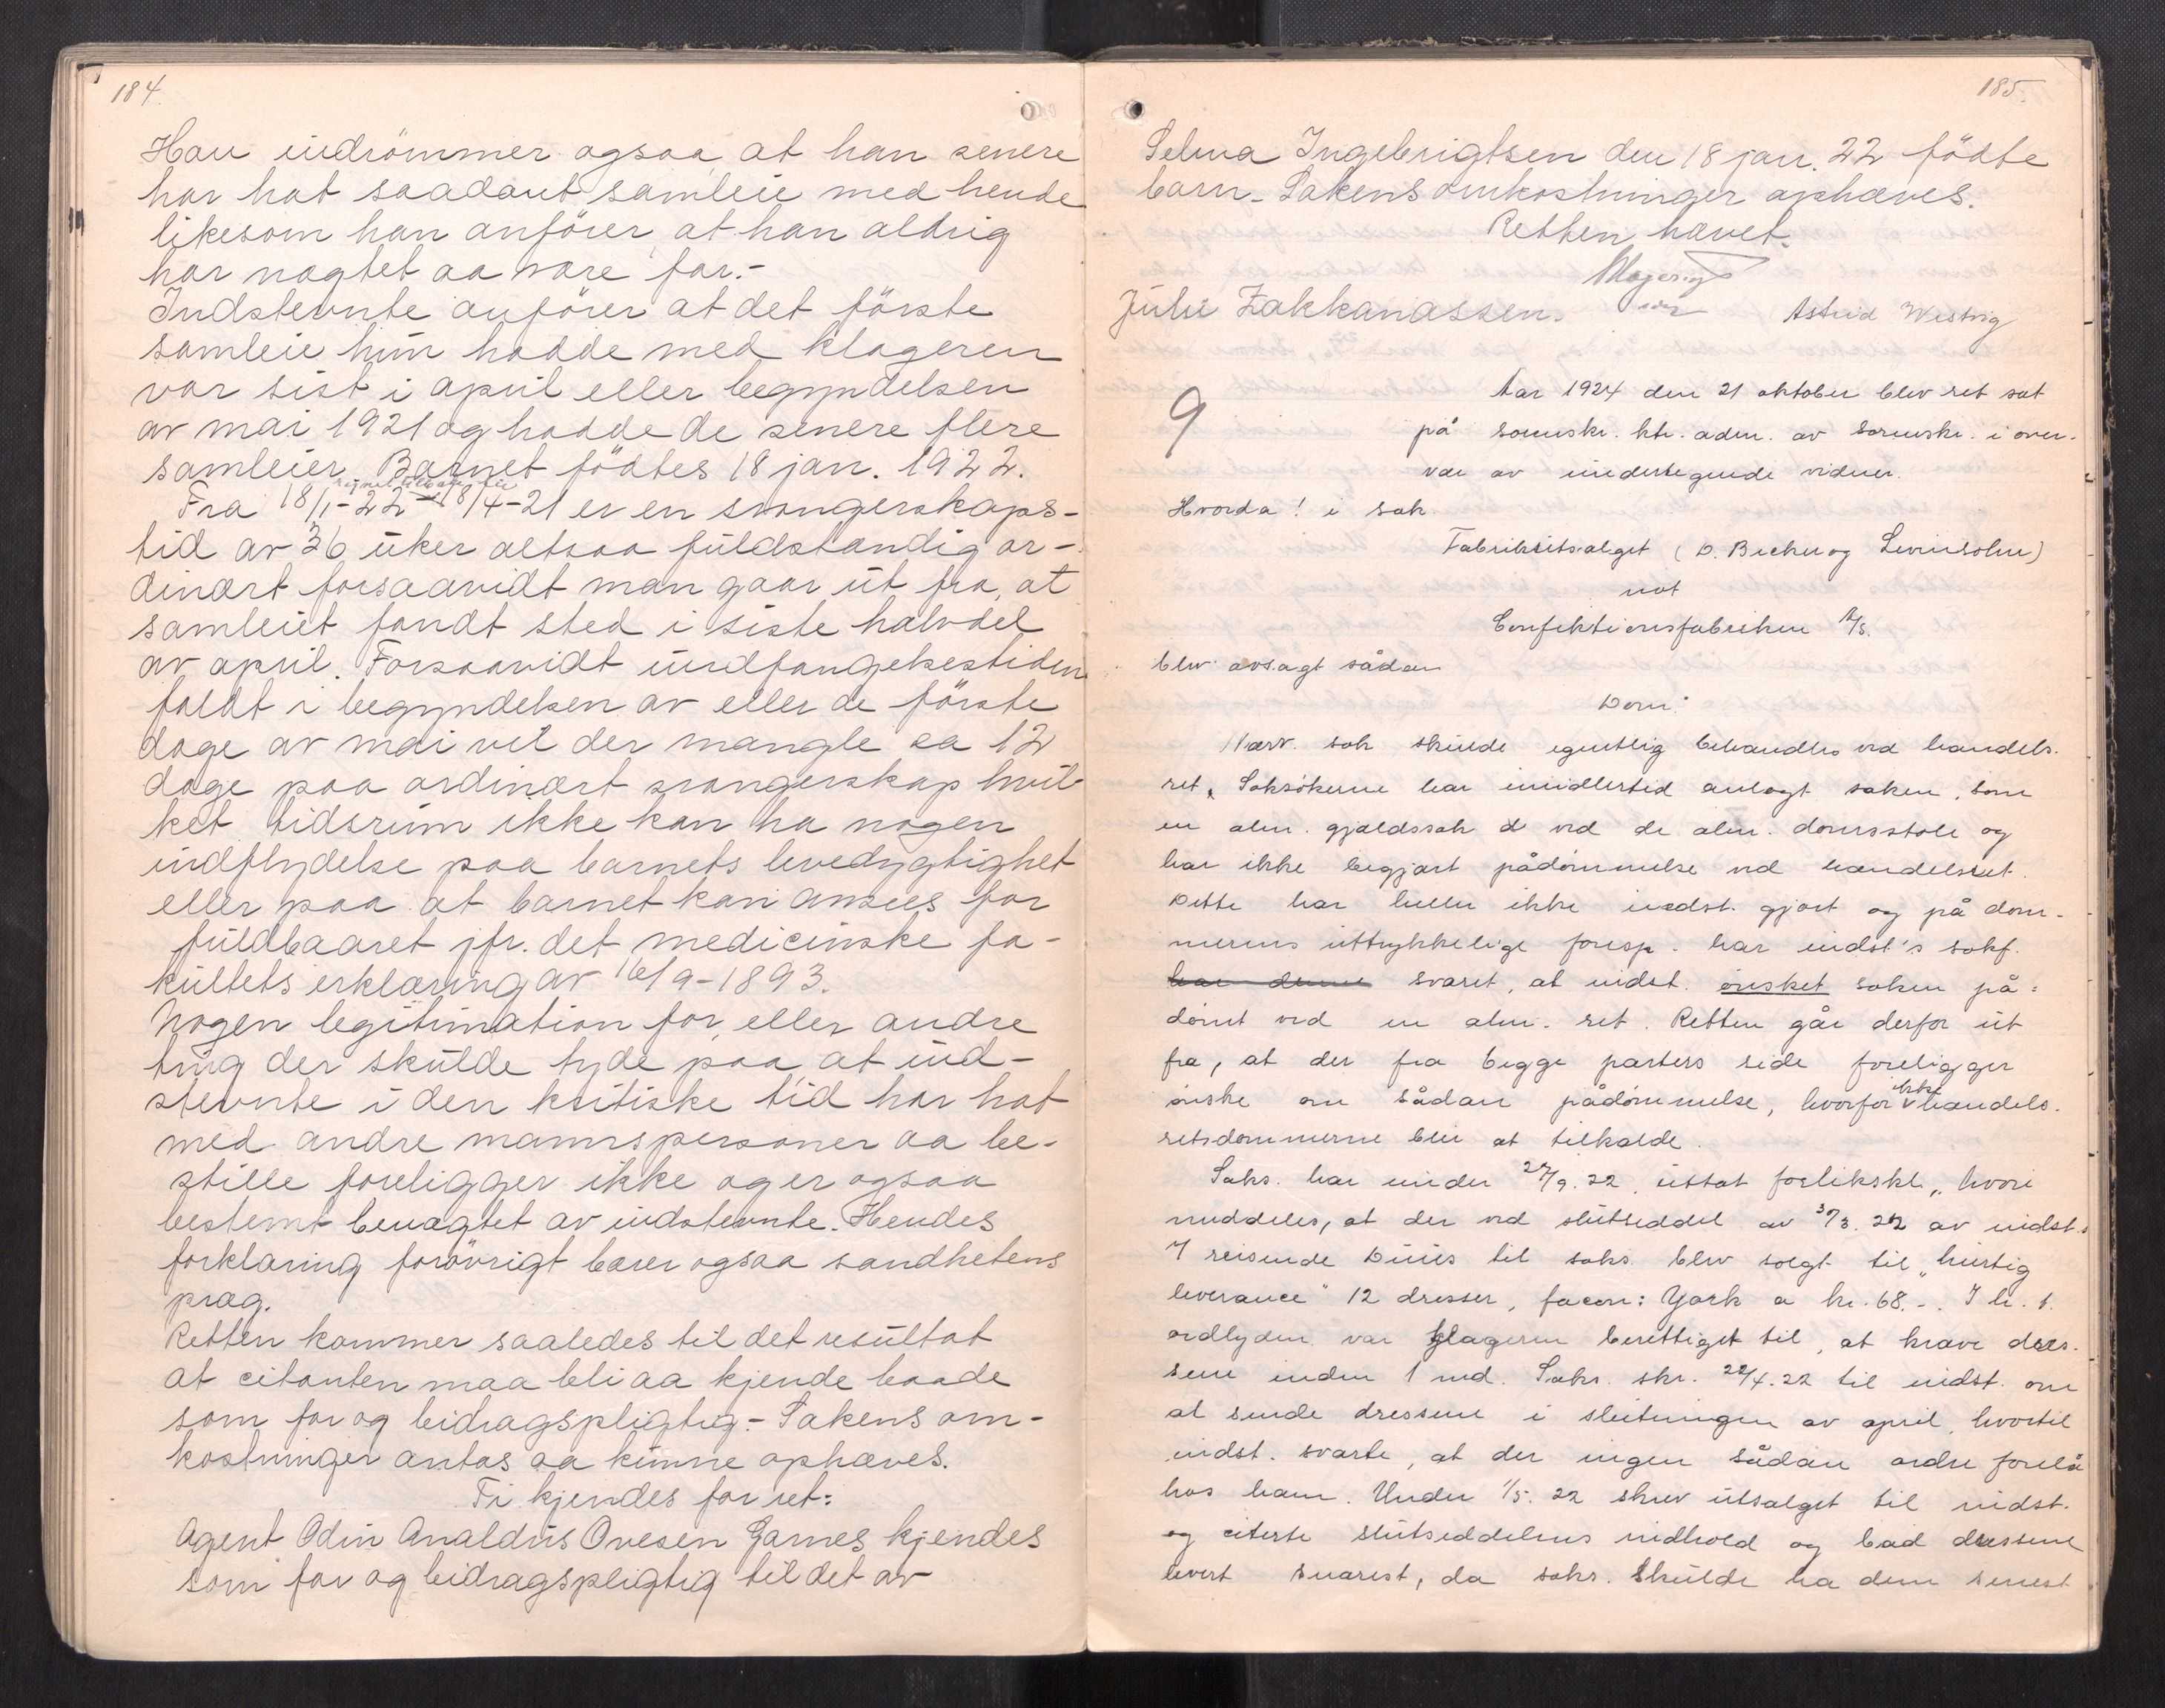 184.
Han indrömmer ogsaa, at han senere
har hat saadant samleie med hende
likesom han anförer, at han aldrig
har nægtet aa være far.-
Indstevnte anförer at det förste
samleie hun hadde med klageren
var sist i april eller begyndelsen
av mai 1921 og hadde de senere flere
samleier. Barnet födtes 18 jan. 1922.
Fra 18/1-22 18/4-21 er en svangerskaps-
tid av 36 uker altsaa fuldstændig or-
dinært forsaavidt man gaar ut fra, at
samleiet fandt sted i siste halvdel
av april. Forsaavidt undfangelsestiden
faldt i begyndelsen av eller de förste
dage av mai vil der mangle ca 12
dage paa ordinært svangerskap hvil-
ket tidsrum ikke kan ha nogen
indflydelse paa barnets levedygtighet
eller paa at barnet kan ansees for
fuldbaaret jfr. det medicinske fa-
kultets erklæring av 16/9-1893.
Nogen legitimation for, eller andre
ting der skulde tyde paa, at ind-
stevnte i den kritiske tid har hat
med andre mannspersoner aa be-
stille foreligger ikke og er ogsaa
bestemt benægtet av indstevnte. Hendes
forklaring forövrigt bærer ogsaa sandhetens
præg.
Retten kommer saaledes til det resultat
at citanten maa bli aa kjende baade
som far og bidragspligtig.- Sakens om-
kostninger antas aa kunne ophæves.
Ti kjendes for ret:
Agent Odin Analdus Ovesen Garnes kjendes
som far og bidragspligtig til det av
185.
Selma Ingebrigtsen den 18 jan. 22 födte
barn. Sakens omkostninger ophæves.
Retten hævet.
Julie Zakkariassen. Astrid Westvig
9
Aar 1924 den 21 oktober blev ret sat
på sorenskr. ktr. adm. av sorenskr. i over-
vær av undertegnede vidner.
Hvorda! i sak
Fabrikutsalget (D. Becker og Levinsohn)
mot
Confektionsfabriken A/S.
blev avsagt sådan
Dom:
Nærv. sak skulde egentlig behandles ved handels-
ret, Saksökerne har imidlertid anlagt saken, som
en alm. gjældssak ved de alm. domsstole og
har ikke begjært pådömmelse ved handelsret.
Dette har heller ikke indst. gjort og på dom-
merens uttrykkelige foresp. har indst's sakf.
har denne svaret, at indst. önsket saken på-
dömt ved en alm. ret. Retten går derfor ut
fra, at der fra begge parters side foreligger
önske om sådan pådömmelse, hvorfor ikke handels-
retsdommerne blir at tilkalde.
Saks. har under 27/9.22. uttat forlikskl., hvori
meddeles, at der ved slutseddel av 3/3.22 av indst.s
reisende Duus til saks. blev solgt til "hurtig
leverance" 12 dresser, facon: York a kr. 68.-. I h. t.
ordlyden var klageren berettiget til, at kræve dres-
sene inden 1 md. Saks. skr. 22/4.22 til indst. om
at sende dressene i slutningen av april, hvortil
indst. svarte, at der ingen sådan ordre forelå
hos ham. Under 1/5.22 skrev utsalget til indst.
og citerte slutseddelens indhold og bad dressene
levert snarest, da saks. skulde ha dem senest